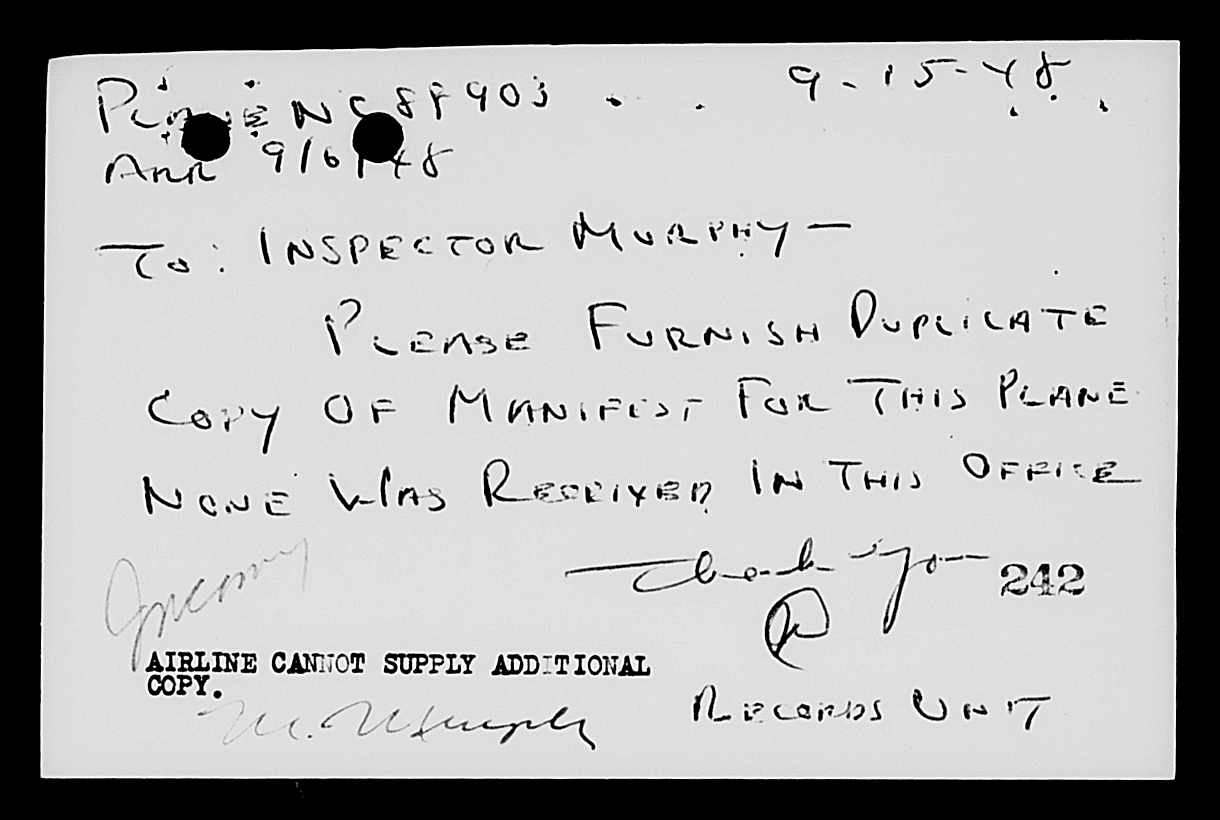 PLANE NC 88903 9-15-48
ARR 9/6/48
TO: INSPECTOR MURPHY —
PLEASE FURNISH DUPLICATE
COPY OF MANIFEST FOR THIS PLANE
NONE WAS RECEIVED IN THIS OFFICE
Thank You 242
AIRLINE CANNOT SUPPLY ADDITIONAL
COPY.
RECORDS UNIT
M. Murphy